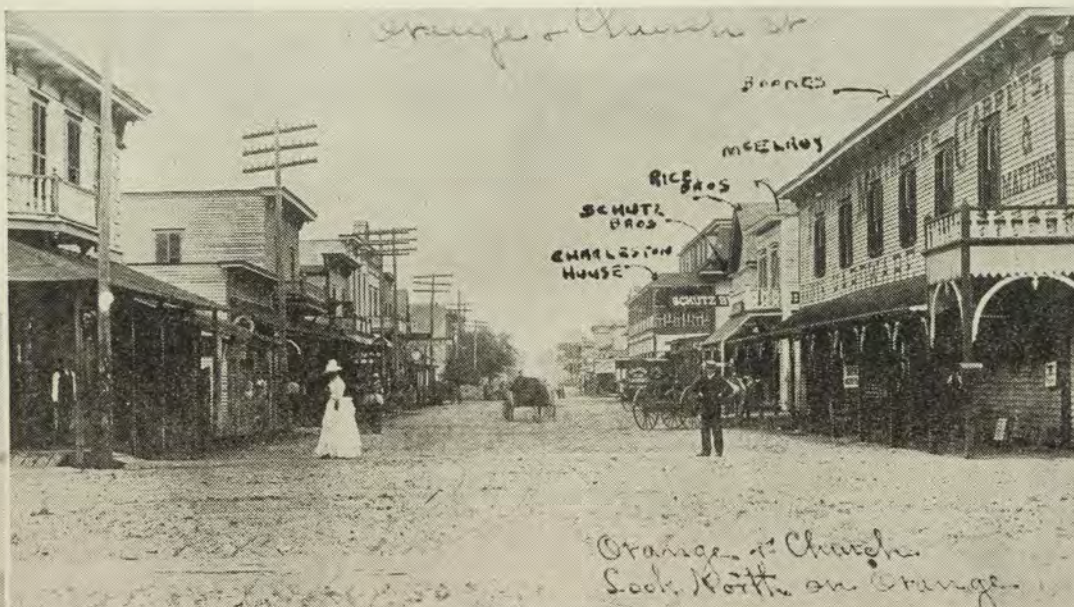 Orange & Church St
BOONES
McELROY
RICE
BROS
SCHUTZ
BROS
CHARLESTON
HOUSE
CARPETS,
&
MATTINGS
HARDWARE
SCHUTZ B
Orange & Church
Look North on Orange